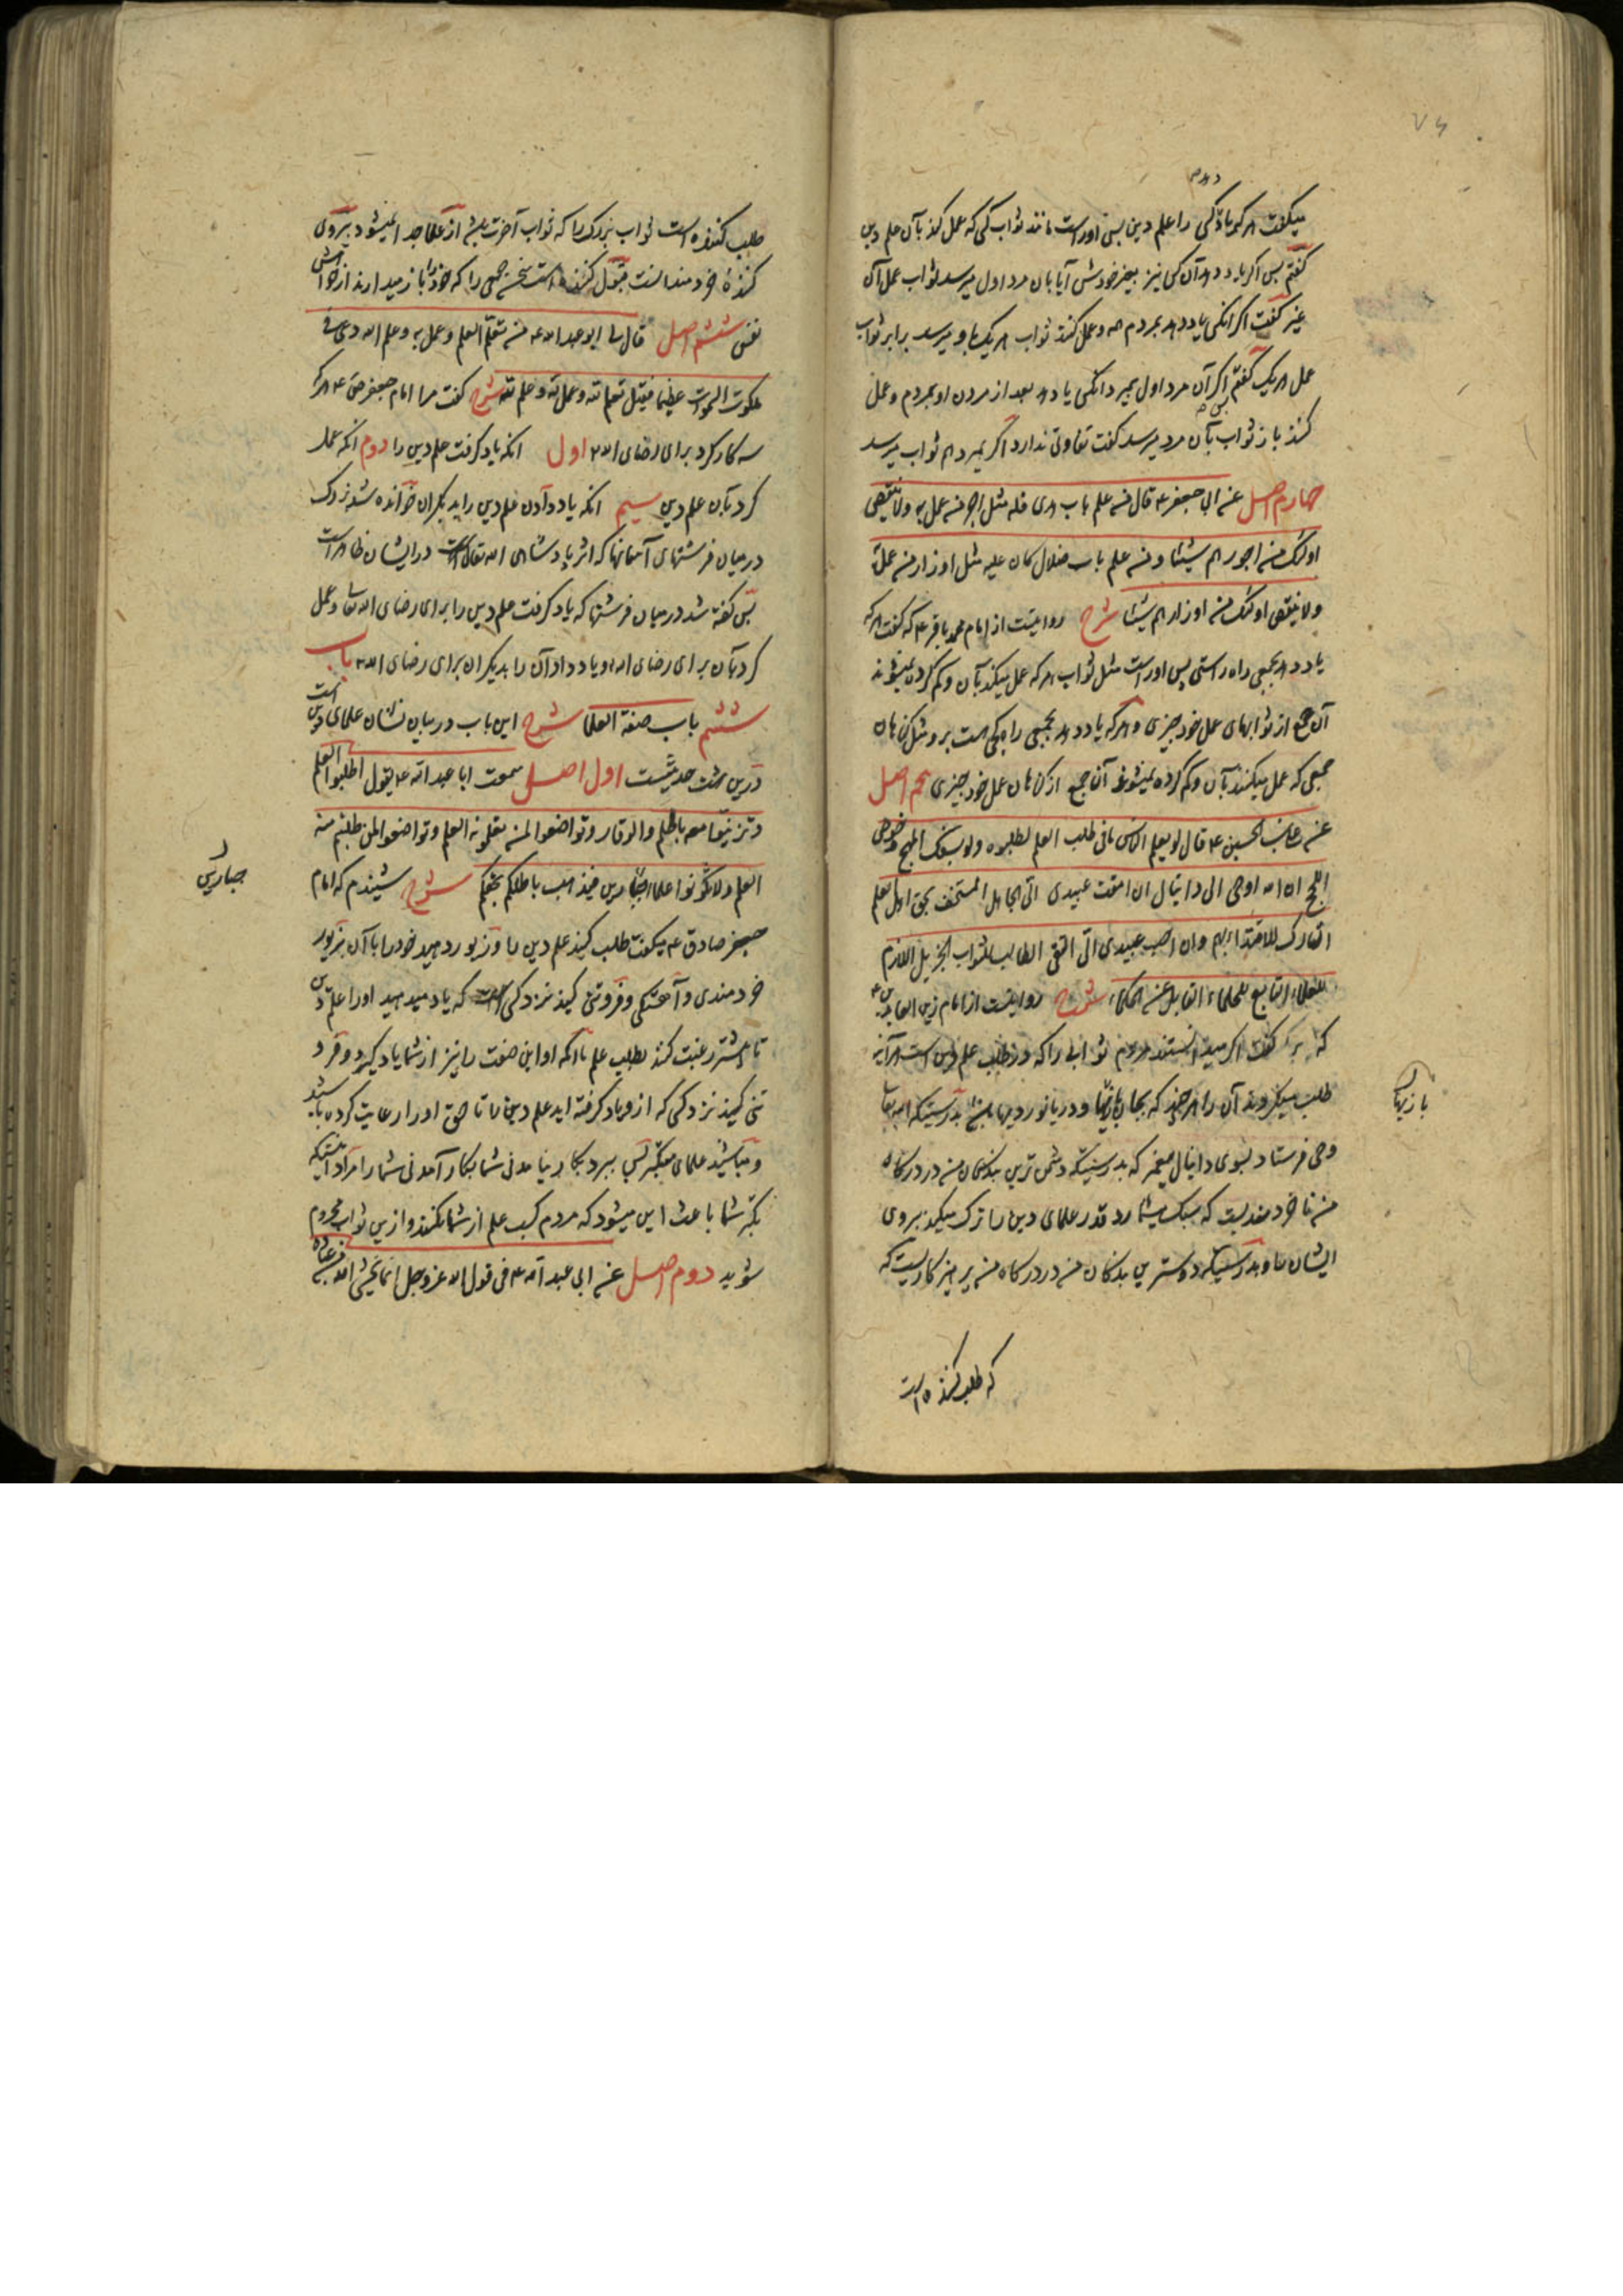 میگفت هر که یاد دهد کسی را علم دین پس اوراست مانند ثواب کسی که عمل کند بآن علم دین
گفتم پس اگر یاد دهد آن کس نیز بغیر خودش آیا بآن مرد اول میرسد ثواب عمل آن
غیر گفت اگر آنکس یاد دهد بمردم همه و عمل کنند ثواب هر یک باو میرسد برابر ثواب
عمل هر یک گفتم اگر آن مرد اول بمیرد آنکس یاد دهد بعد از مردن او بمردم و عمل
کنند باز ثواب بآن مرد میرسد گفت تفاوتی ندارد اگر بمیرد هم ثواب میرسد
چهارم اصل عن ابی جعفر ع قال من علم باب هدی فله مثل اجر من عمل به ولا ینقص
اولئک من اجورهم شیئا ومن علم باب ضلال کان علیه مثل اوزار من عمل به
ولا ینقص اولئک من اوزارهم شیئا شرح روایتست از امام محمد باقر ع که گفت هر که
یاد دهد بجمعی راه راستی پس اوراست مثل ثواب هر که عمل میکند بآن و کم کرده نمیشوند
آن جمع از ثوابهای عمل خود چیزی و هر که یاد دهد بجمعی راه کجی هست برو مثل گناهان
جمعی که عمل میکنند بآن و کم کرده نمیشوند آن جمع از گناهان عمل خود چیزی پنجم اصل
عن علی بن الحسین ع قال لو یعلم الناس ما فی طلب العلم لطلبوه ولو بسفک المهج وخوض
اللجج ان الله اوحی الی دانیال ان امقت عبیدی الی الجاهل المستخف بحق اهل العلم
التارک للاقتداء بهم وان احب عبیدی الی التقی الطالب للثواب الجزیل اللازم
للعلماء التابع للحلماء القابل عن الحکماء شرح روایتست از امام زین العابدین ع
که گفت اگر میدانستند مردم ثوابی را که در طلب علم دین است هر آینه
طلب میکردند آن را هر چند که بجان بازیها و دریا نوردیها باشد بدرستیکه الله تعالی
بازیها
وحی فرستاد بسوی دانیال پیغمبر که بدرستیکه دشمن ترین بندگان من در درگاه
من ناخردمندیست که سبک میشمارد قدر علمای دین را ترک میکند پیروی
ایشان را و بدرستیکه دوستترین بندگان من در درگاه من پرهیزکاریست که
که طلب کننده است
طلب کننده است ثواب بزرگ را که ثواب آخرت باشد از علما جدا نمیشود پیروی
کننده خردمندانست قبول کننده است سخن جمعی را که خود را باز میدارند از خواهش
نفس ششم اصل قال لی ابو عبد الله ع من تعلم العلم وعمل به وعلم لله دعی فی
ملکوت السموات عظیما فقیل تعلم لله وعمل لله وعلم لله شرح گفت مرا امام جعفر ع هر که
سه کار کرد برای رضای الله اول آنکه یاد گرفت علم دین را دوم آنکه عمل
کرد بآن علم دین سیم آنکه یاد دادن علم دین را بدیگران خوانده شد بزرگ
در میان فرشتهای آسمانها که اثر پادشاهی الله تعالی در ایشان ظاهر است
پس گفته شد در میان فرشتها که یاد گرفت علم دین را برای رضای الله تعالی و عمل
کرد بآن برای رضای الله و یاد داد آن را بدیگران برای رضای الله باب
ششم باب صفة العلما شرح این باب در بیان نشان علمای دین است
درین هشت حدیثست اول اصل سمعت ابا عبد الله ع یقول اطلبوا العلم
وتزینوا معه بالحلم والوقار وتواضعوا لمن تعلمونه العلم وتواضعوا لمن طلبتم منه
العلم ولا تکونوا علماء جبارین فیذهب باطلکم بحقکم شرح شنیدم که امام
جبارین
جعفر صادق ع میگفت طلب کنید علم دین را و زیور دهید خود را با آن بزیور
خردمندی و آهستگی و فروتنی کنید نزد کسی که یاد میدهید او را علم دین
تا بیشتر رغبت کند بطلب علم تا آنکه او این صفت را نیز از شما یاد گیرد و فرو
تنی کنید نزد کسی که ازو یاد گرفته اید علم دین را تا حق او را رعایت کرده باشید
و مباشید علمای متکبر پس ببرد بکار نیامدنی شما بکار آمدنی شما را مراد اینستکه
تکبر شما باعث این میشود که مردم کسب علم از شما نکنند و ازین ثواب محروم
شوید دوم اصل عن ابی عبد الله ع فی قول الله عز وجل انما یخشی الله من عباده